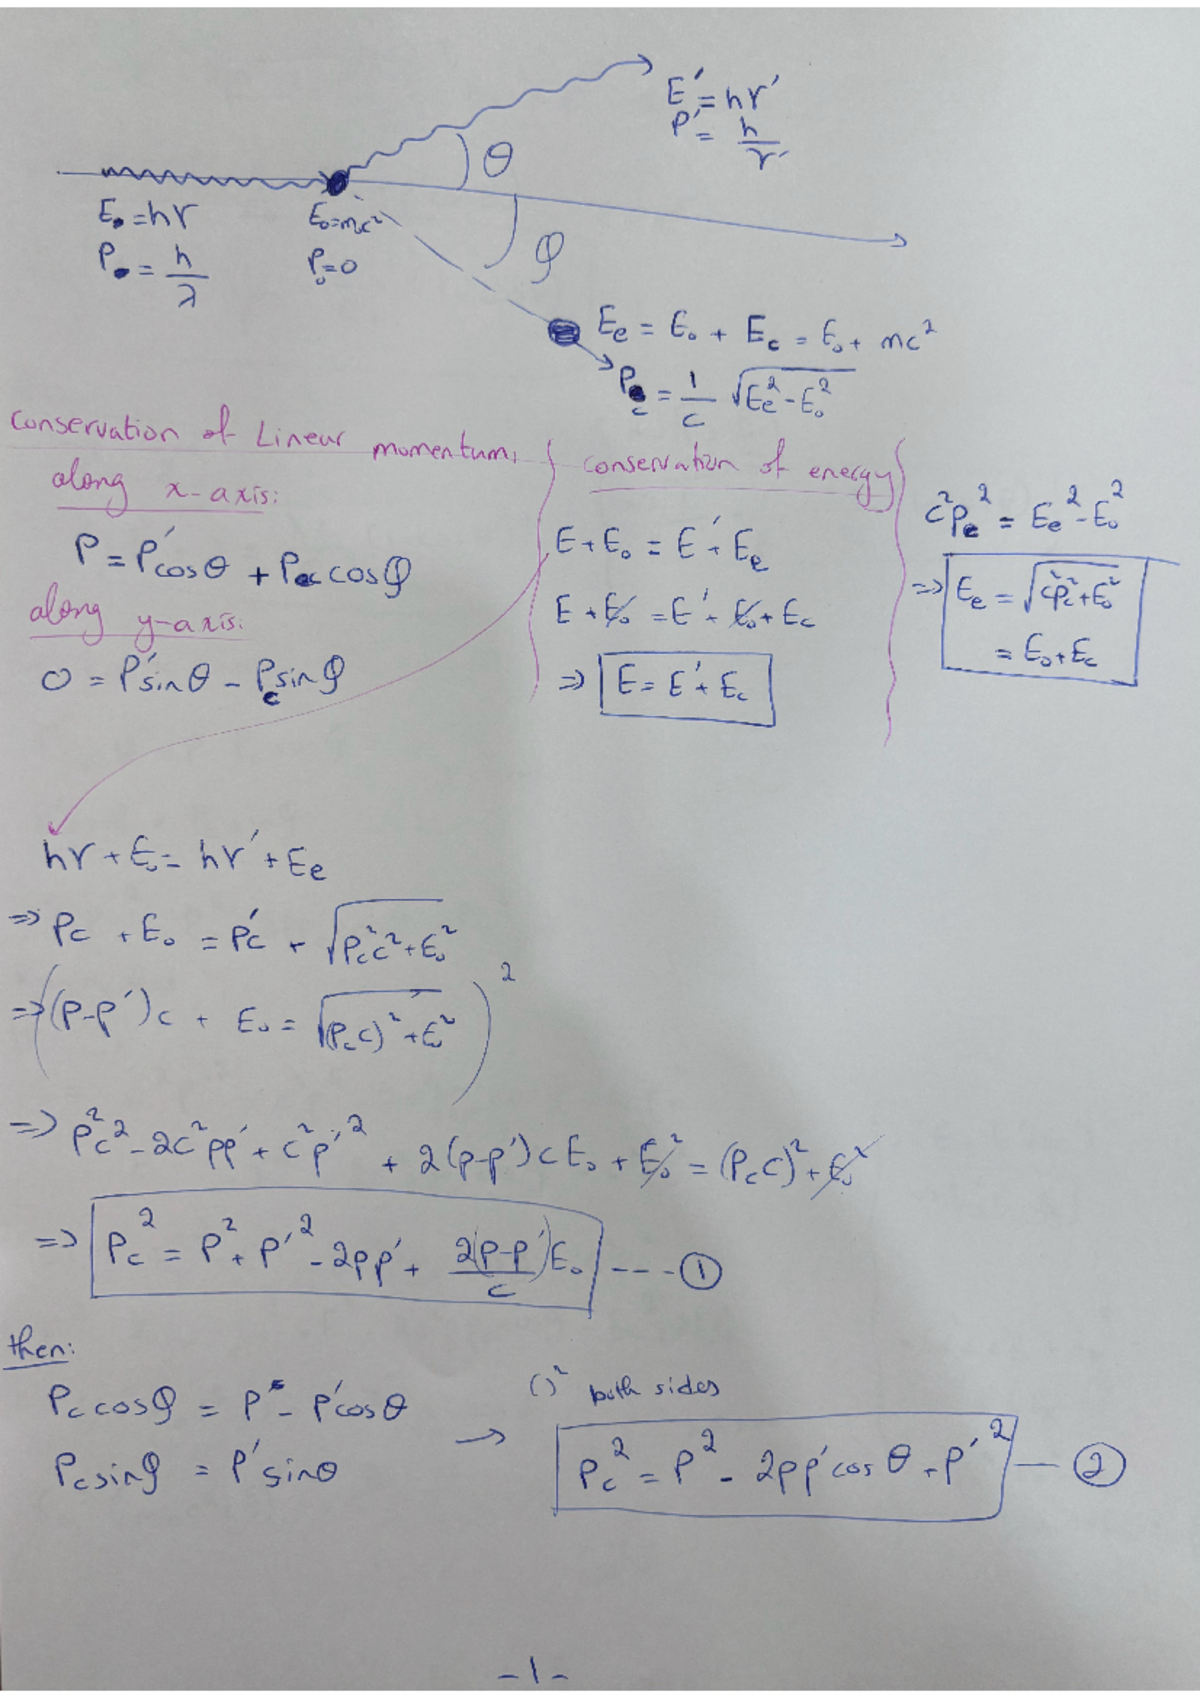 E' = hγ'
P' = h/γ'
θ
E. = hγ
P. = h/λ
E₀=mc²
P₀=0
φ
Eₑ = E₀ + E_c = E₀ + mc²
P_c = 1/c √(Eₑ² - E₀²)
Conservation of Linear momentum,
along x-axis:
P = P'cosθ + P_c cosφ
along y-axis:
0 = P'sinθ - P_c sinφ
conservation of energy
E + E₀ = E' + Eₑ
E + E₀ = E' + E₀ + E_c
⇒ E = E' + E_c
c²pₑ² = Eₑ² - E₀²
⇒ Eₑ = √(c²p_c² + E₀²)
= E₀ + E_c
hγ + E₀ = hγ' + Eₑ
⇒ Pc + E₀ = P'c + √(P_c²c² + E₀²)
⇒ ((P-P')c + E₀ = √((P_c c)² + E₀²))²
⇒ P²c² - 2c²pp' + c²p'² + 2(p-p')cE₀ + E₀² = (P_c c)² + E₀²
⇒ P_c² = P² + P'² - 2pp' + 2(p-p')E₀/c ---- ①
then:
P_c cosφ = P - P'cosθ
P_c sinφ = P'sinθ
→
()² both sides
P_c² = P² - 2pp'cosθ + P'² — ②
-1-